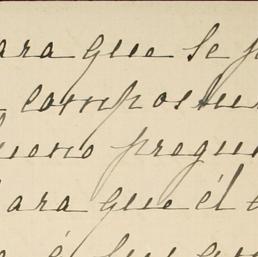 ara que se p
compostur
ueno pregu
ara que él